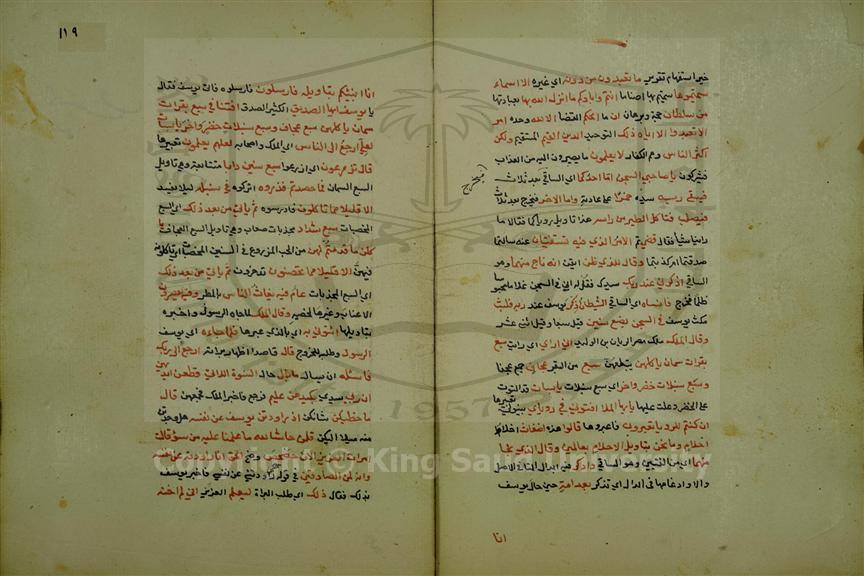 خبر استفهام تقرير ما تعبدون من دونه اي غيره الا اسماء
سميتموها سميتم بها اصناما انتم واباؤكم ما انزل الله بها بعبادتها
من سلطان حجة وبرهان ان ما الحكم القضا الا لله وحده امر
الا تعبدوا الا اياه ذلك التوحيد الدين القيم المستقيم ولكن
اكثر الناس وهم الكفار لا يعلمون ما يصيرون اليه من العذاب
فيشركون يا صاحبي السجن اما احدكما اي الساقي بعد ثلاث
فيسقي ربه سيده خمرا على عادته واما الاخر فيخرج بعد ثلاث
فيصلب فتاكل الطير من راسه هذا تاويل روياكما فقالا ما
راينا شيا فقال قضي تم الامر الذي فيه تستفتيان عنه سالتما
صدقتما ام كذبتما وقال للذي ظن ايقن انه ناج منهما وهو
الساقي اذكرني عند ربك سيدك فقل له ان في السجن غلاما محبوسا
ظلما فخرج فانساه اي الساقي الشيطان ذكر يوسف عند ربه فلبث
مكث يوسف في السجن بضع سنين قيل سبعا وقيل اثنى عشر
وقال الملك ملك مصر الريان بن الوليد اني ارى اي رايت سبع
بقرات سمان ياكلهن يبتلعهن سبع من البقر عجاف جمع عجفا
وسبع سنبلات خضر واخر اي سبع سنبلات يابسات قد التوت
على الخضر وعلت عليها يا ايها الملا افتوني في روياي بينوا لي تعبيرها
ان كنتم للرويا تعبرون فاعبروها قالوا هذه اضغاث اخلاط
احلام وما نحن بتاويل الاحلام بعالمين وقال الذي نجا
منهما اي من الفتيين وهو الساقي وادكر فيه ابدال التا في الاصل
دالا وادغامها في الدال اي تذكر بعد امة حين حال يوسف
انا
١١٩
انا انبئكم بتاويله فارسلون فارسلوه فاتى يوسف فقال
يا يوسف ايها الصديق الكثير الصدق افتنا في سبع بقرات
سمان ياكلهن سبع عجاف وسبع سنبلات خضر واخر يابسات
لعلي ارجع الى الناس اي الملك واصحابه لعلهم يعلمون تعبيرها
قال تزرعون اي ازرعوا سبع سنين دابا متتابعة وهي تاويل
السبع السمان فما حصدتم فذروه اتركوه في سنبله ليلا يفسد
الا قليلا مما تاكلون فادرسوه ثم ياتي من بعد ذلك اي السبع
المخصبات سبع شداد مجدبات صعاب وهي تاويل السبع العجاف
ياكلن ما قدمتم لهن من الحب المزروع في السنين المخصبات اي تاكلونه
فيهن الا قليلا مما تحصنون تدخرون ثم ياتي من بعد ذلك
اي السبع المجدبات عام فيه يغاث الناس بالمطر وفيه يعصرون
الاعناب وغيرها لخصبه وقال الملك لما جاه الرسول واخبره
بتاويلها ائتوني به اي بالذي عبرها فلما جاءه اي يوسف
الرسول وطلبه للخروج قال قاصدا اظهار براته ارجع الى ربك
فاسئله ان يسال ما بال حال النسوة اللاتي قطعن ايديهن
ان ربي سيدي بكيدهن عليم فرجع فاخبر الملك فجمعهن قال
ما خطبكن شانكن اذ راودتن يوسف عن نفسه هل وجدتن
منه ميلا اليكن قلن حاش لله ما علمنا عليه من سوء قالت
امرات العزيز الان حصحص وضح الحق انا راودته عن نفسه
وانه لمن الصادقين في قوله هي راودتني عن نفسي فاخبر يوسف
بذلك فقال ذلك اي طلب البراة ليعلم العزيز اني لم اخنه
Copyright © King Saud University
1957